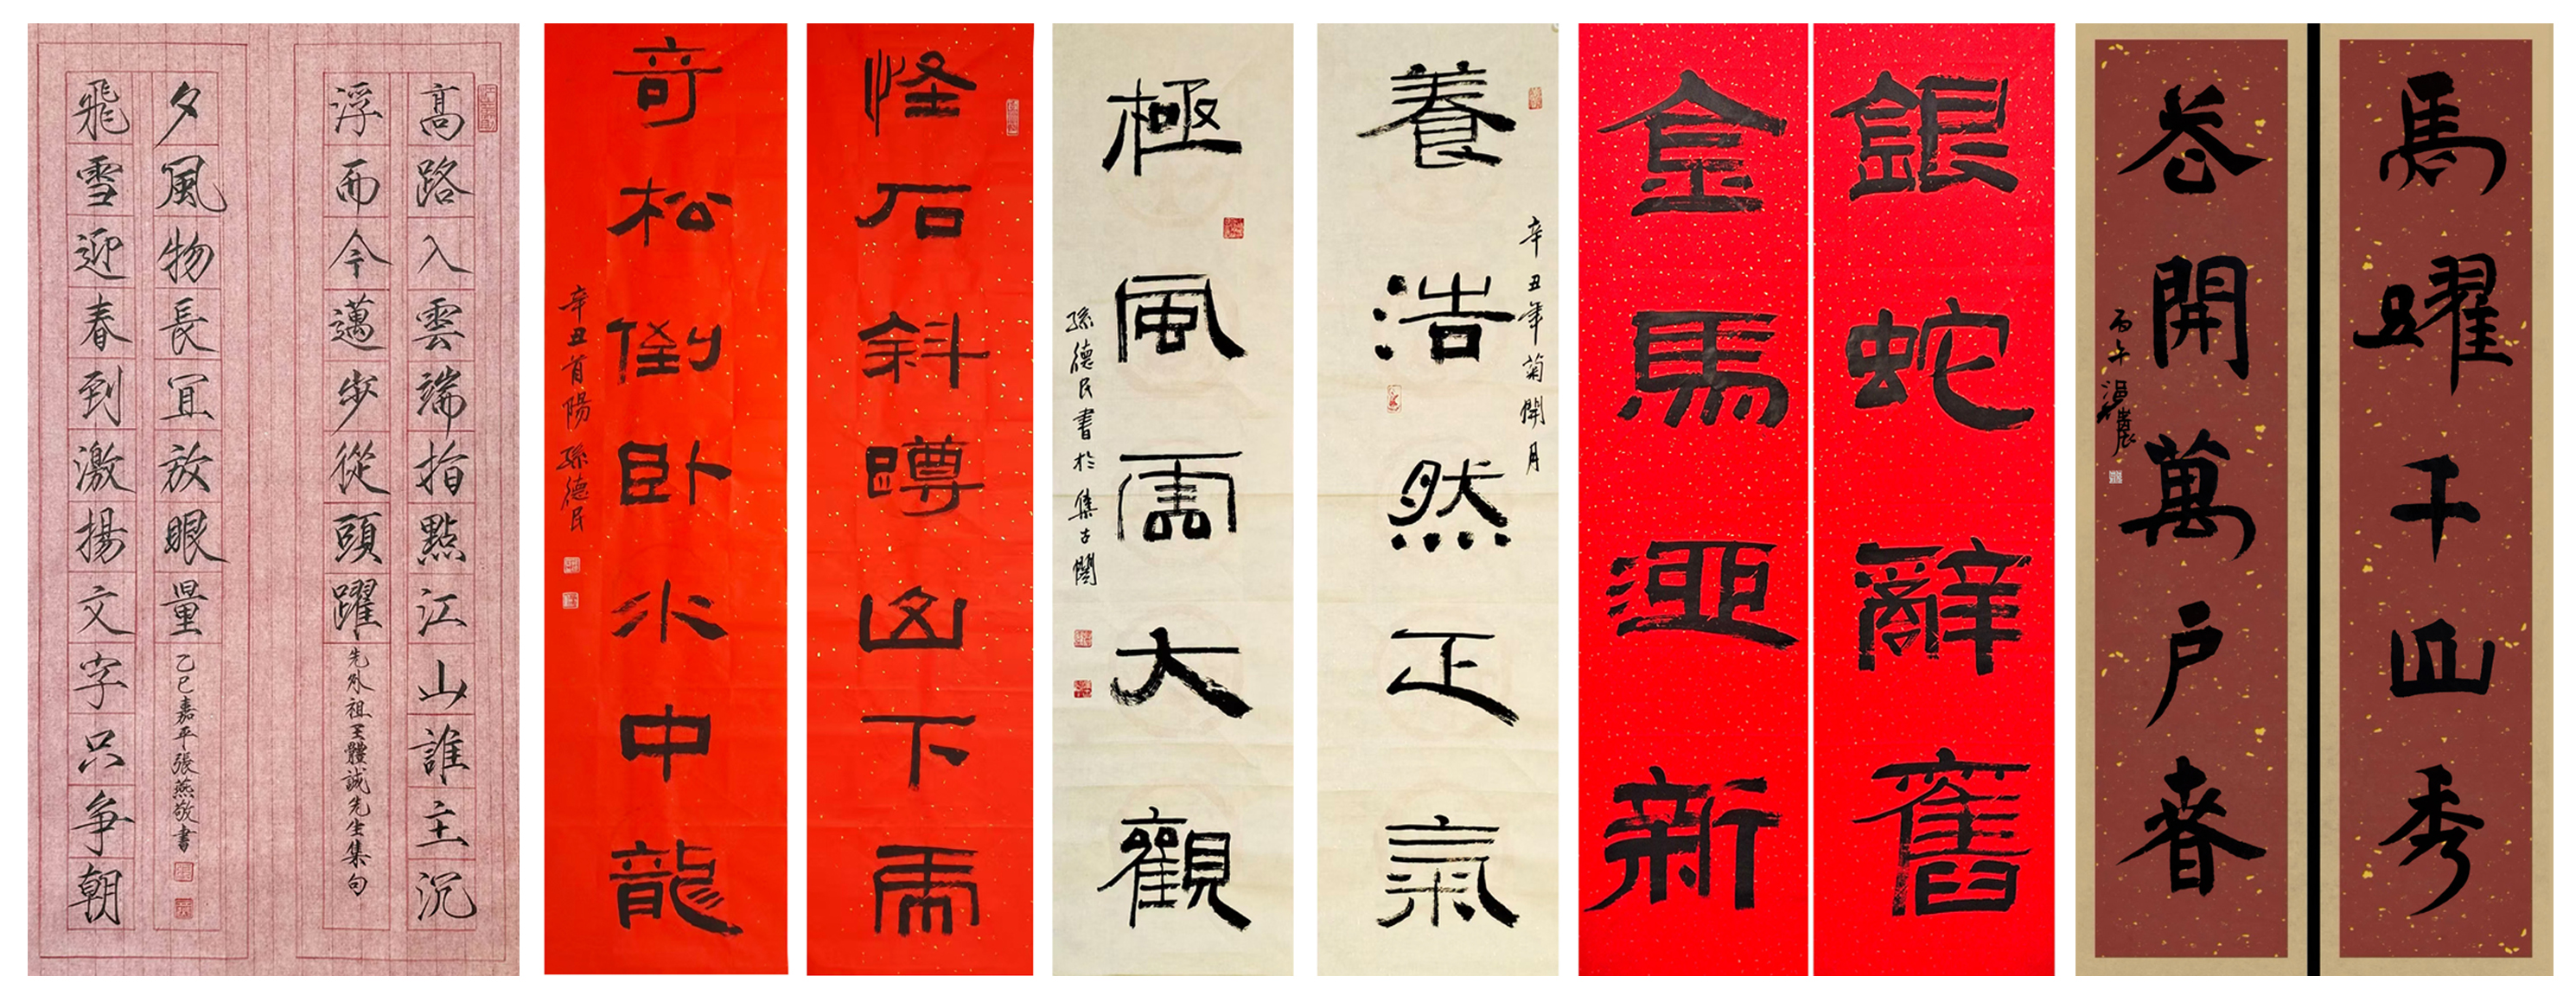 馬躍千山秀
卷開萬户春
丙午
銀蛇辭舊
金馬迎新
辛丑年菊開月
養浩然正氣
極風雲大觀
孫德民書於集古閣
怪石斜蹲山下虎
奇松倒卧水中龍
辛丑首陽 孫德民
高路入雲端指點江山誰主沉
浮而今邁步從頭躍
先外祖王體誠先生集句
飛雪迎春到激揚文字只争朝
夕風物長宜放眼量
乙巳嘉平張燕敬書